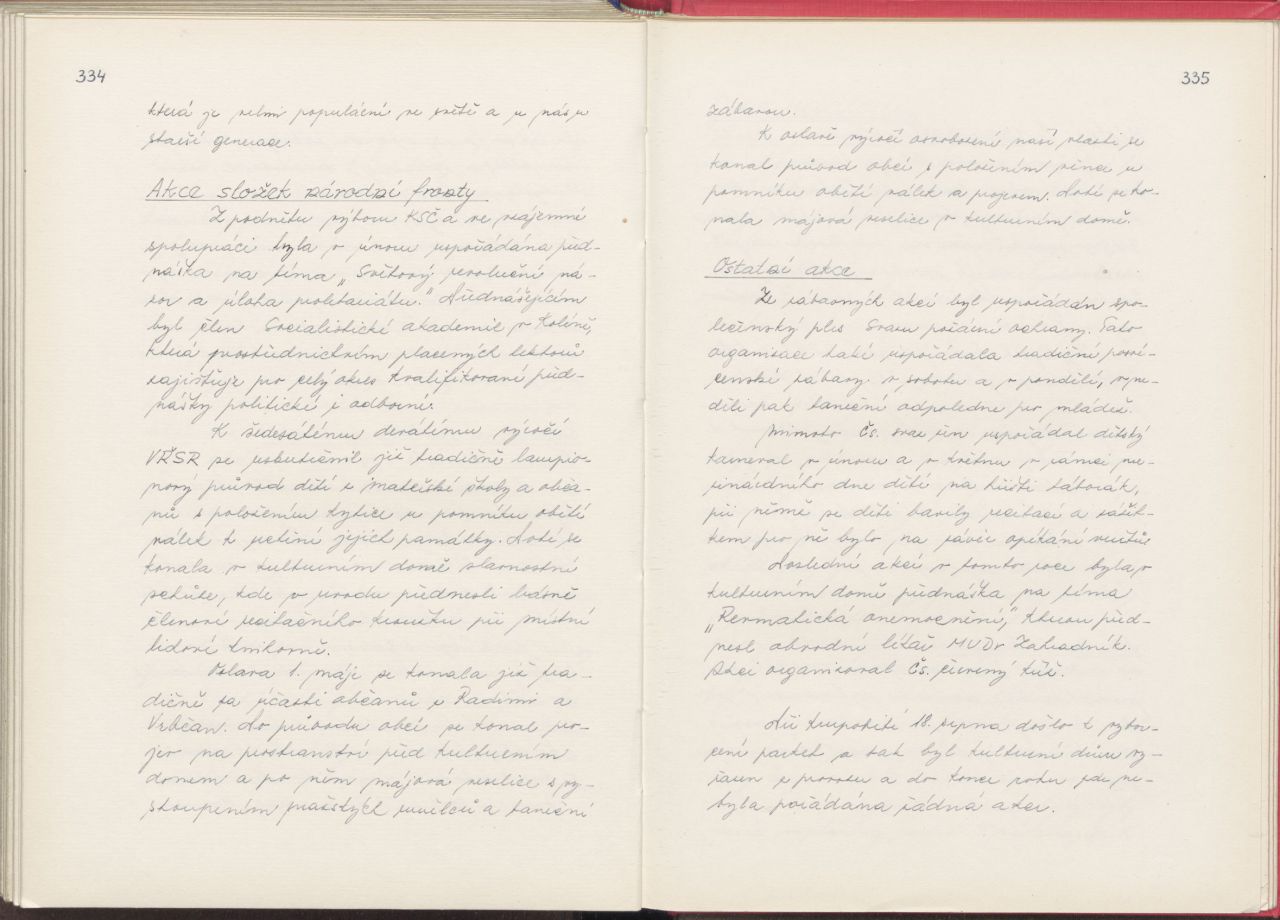 334
která je velmi populární ve světě a u nás u
starší generace.
Akce složek národní fronty
Z podnětu výboru KSČ a ve vzájemné
spolupráci byla v únoru uspořádána před-
náška na téma „Světový revoluční ná-
zor a úloha proletariátu." Přednášejícím
byl člen Socialistické akademie v Kolíně,
která prostřednictvím placených lektorů
zajišťuje pro celý okres kvalifikované před-
nášky politické i odborné.
K šedesátému devátému výročí
VŘSR se uskutečnil již tradičně lampio-
nový průvod dětí z mateřské školy a obča-
nů s položením kytice u pomníku obětí
válek k uctění jejich památky. Poté se
konala v kulturním domě slavnostní
schůze, kde v úvodu přednesli básně
členové recitačního kroužku při místní
lidové knihovně.
Oslava 1. máje se konala již tra-
dičně za účasti občanů z Radimi a
Vrbčan. Po průvodu obcí se konal pro-
jev na prostranství před kulturním
domem a po něm májová veselice s vy-
stoupením pražských umělců a taneční
335
zábavou.
K oslavě výročí osvobození naší vlasti se
konal průvod obcí s položením věnce u
pomníku obětí válek a projevem. Poté se ko-
nala májová veselice v kulturním domě.
Ostatní akce
Ze zábavných akcí byl uspořádán spo-
lečenský ples Svazu požární ochrany. Tato
organizace také uspořádala tradiční posví-
censké zábavy v sobotu a v pondělí, v ne-
děli pak taneční odpoledne pro mládež.
Mimoto Čs. svaz žen uspořádal dětský
karneval v únoru a v květnu v rámci me-
zinárodního dne dětí na hřišti táborák,
při němž se děti bavily recitací a zážit-
kem pro ně bylo na závěr opékání vuřtů.
Poslední akcí v tomto roce byla v
kulturním domě přednáška na téma
„Revmatická onemocnění," kterou před-
nesl obvodní lékař MUDr Zahradník.
Akci organizoval Čs. červený kříž.
Při krupobití 18. srpna došlo k vytop-
cení parket a tak byl kulturní dům vy-
řazen z provozu a do konce roku zde ne-
byla pořádána žádná akce.